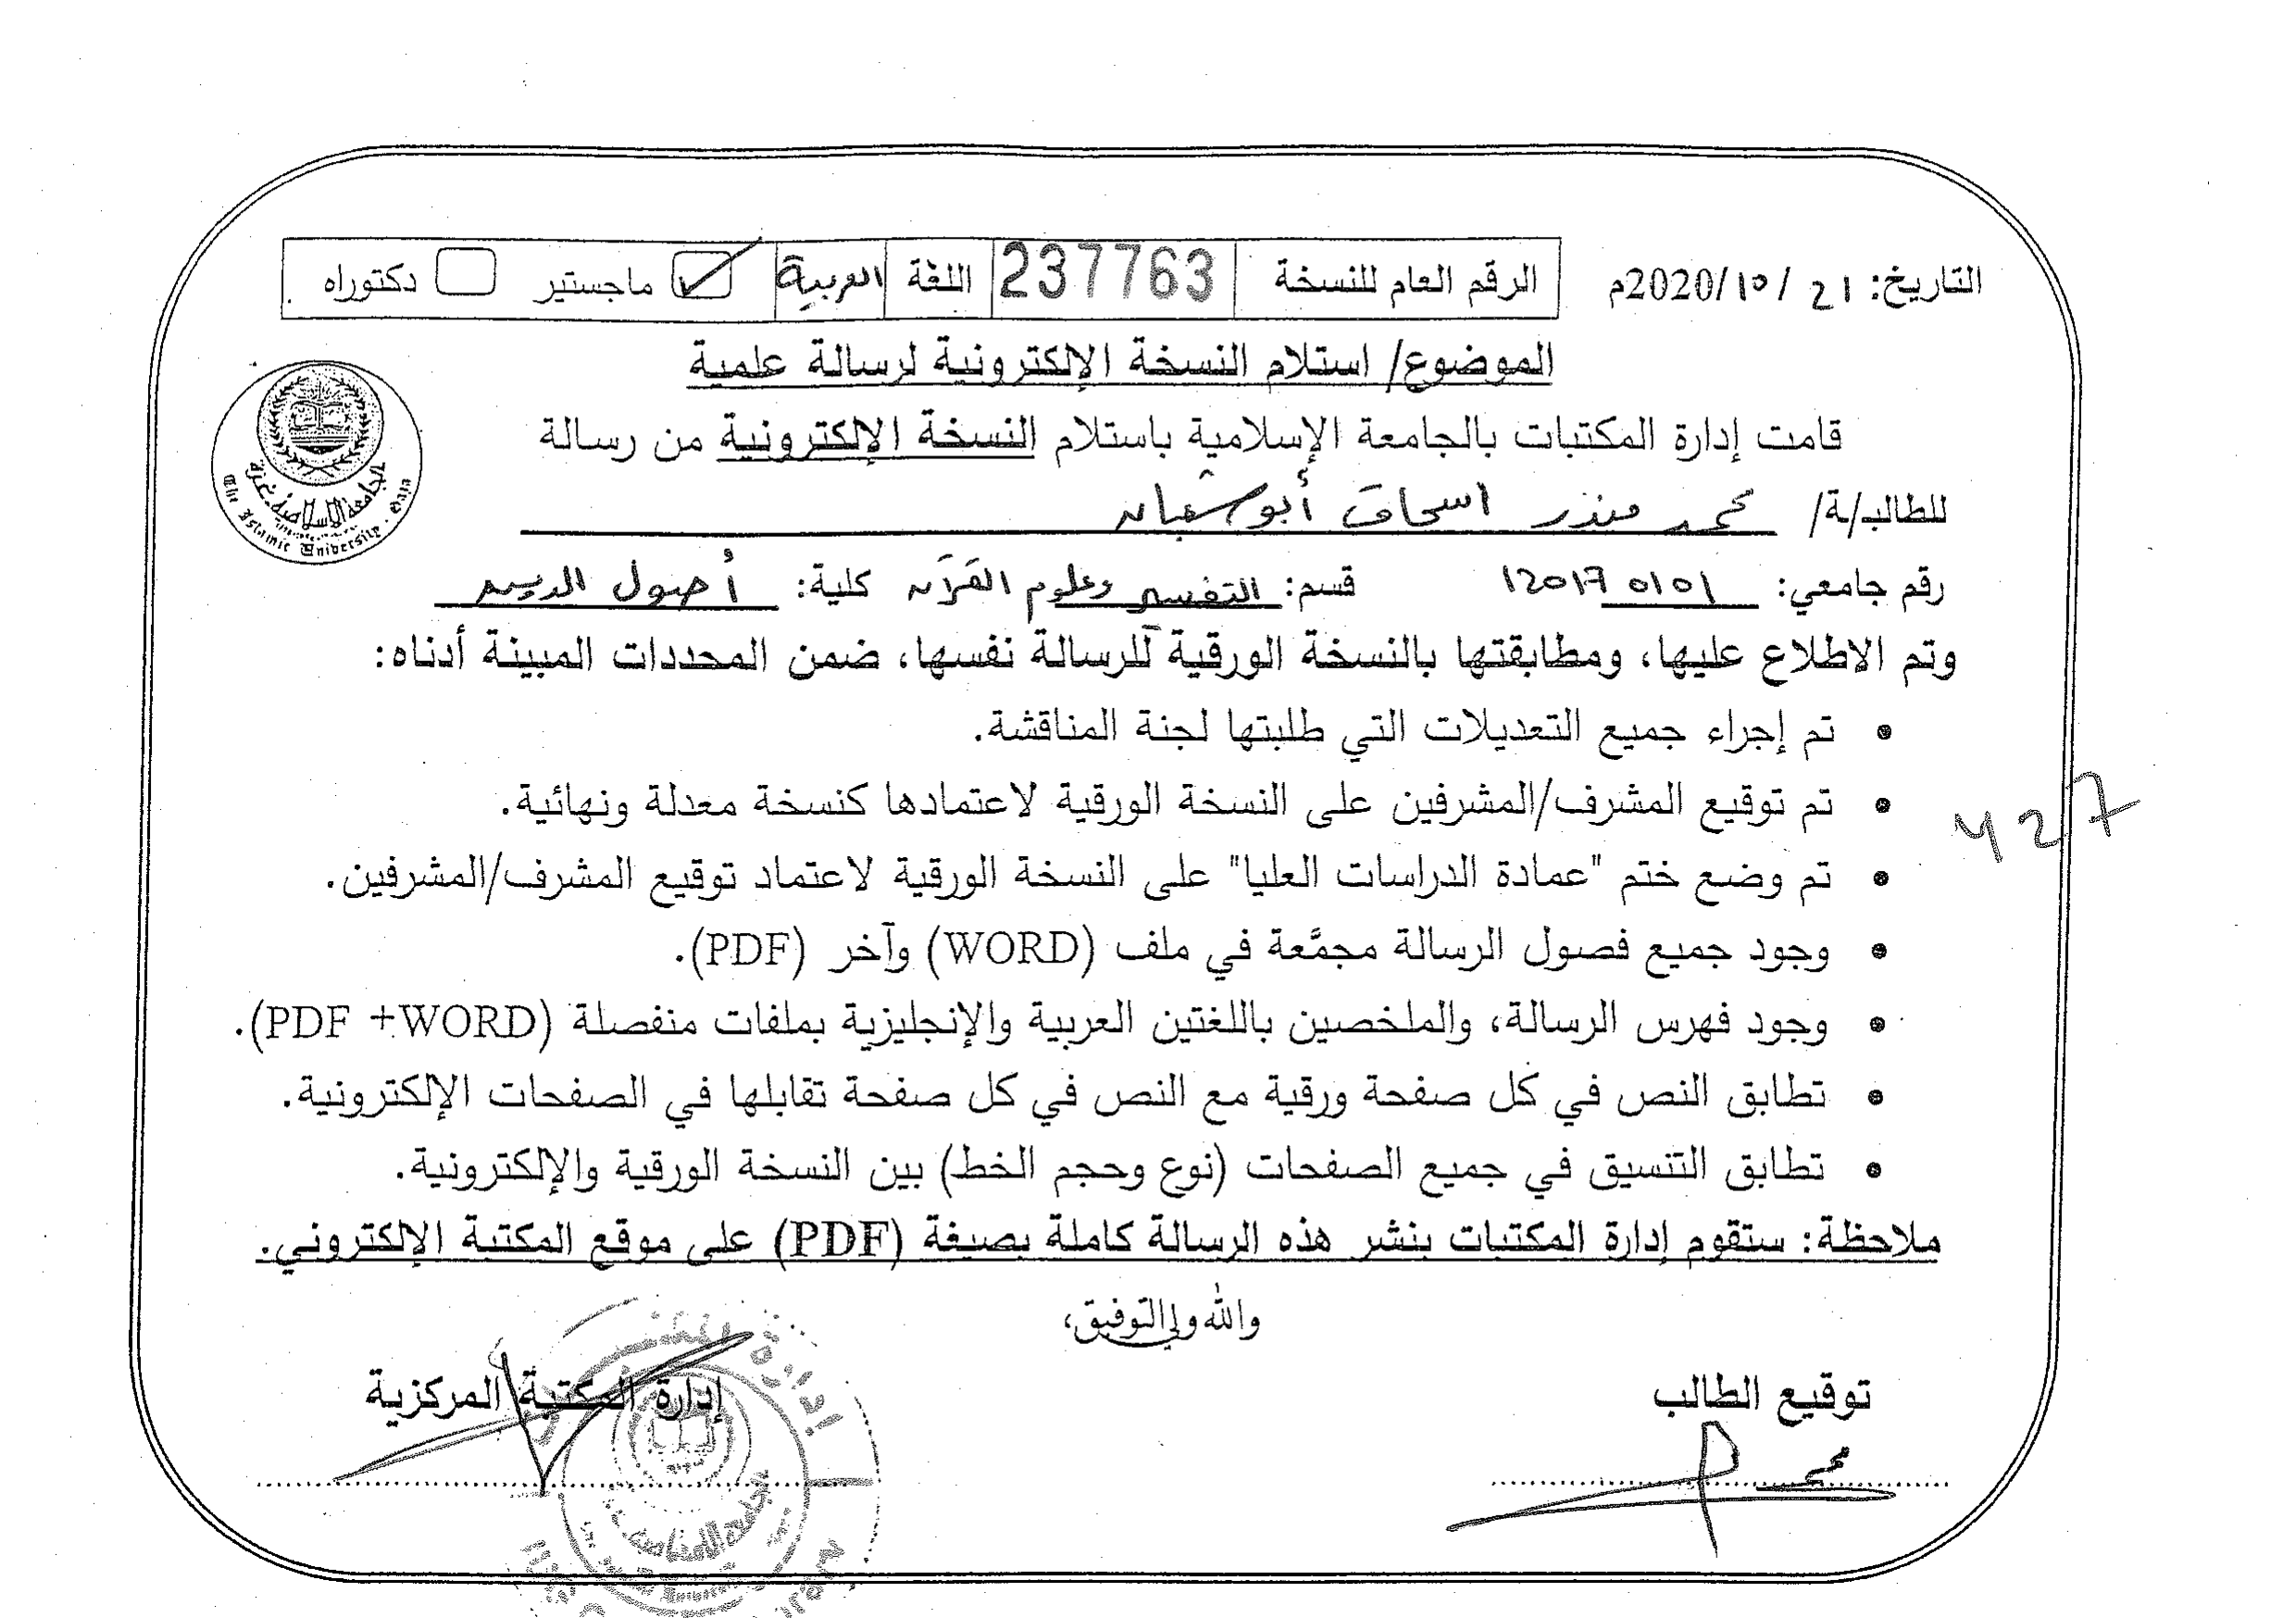 التاريخ: 21 / 10/ 2020م
الرقم العام للنسخة 237763 اللغة العربية ماجستير دكتوراه
الموضوع/ استلام النسخة الإلكترونية لرسالة علمية
قامت إدارة المكتبات بالجامعة الإسلامية باستلام النسخة الإلكترونية من رسالة
للطالب/ـة/ محمد منذر اسحاق أبو شعبان
رقم جامعي: 120170101 قسم: التفسير وعلوم القرآن كلية: أصول الدين
وتم الاطلاع عليها، ومطابقتها بالنسخة الورقية للرسالة نفسها، ضمن المحددات المبينة أدناه:
• تم إجراء جميع التعديلات التي طلبتها لجنة المناقشة.
• تم توقيع المشرف/المشرفين على النسخة الورقية لاعتمادها كنسخة معدلة ونهائية.
• تم وضع ختم "عمادة الدراسات العليا" على النسخة الورقية لاعتماد توقيع المشرف/المشرفين.
• وجود جميع فصول الرسالة مجمَّعة في ملف (WORD) وآخر (PDF).
• وجود فهرس الرسالة، والملخصين باللغتين العربية والإنجليزية بملفات منفصلة (PDF +WORD).
• تطابق النص في كل صفحة ورقية مع النص في كل صفحة تقابلها في الصفحات الإلكترونية.
• تطابق التنسيق في جميع الصفحات (نوع وحجم الخط) بين النسخة الورقية والإلكترونية.
ملاحظة: ستقوم إدارة المكتبات بنشر هذه الرسالة كاملة بصيغة (PDF) على موقع المكتبة الإلكتروني.
والله ولي التوفيق،
توقيع الطالب
إدارة المكتبة المركزية
الجامعة الإسلامية غزة
The Islamic University - Gaza